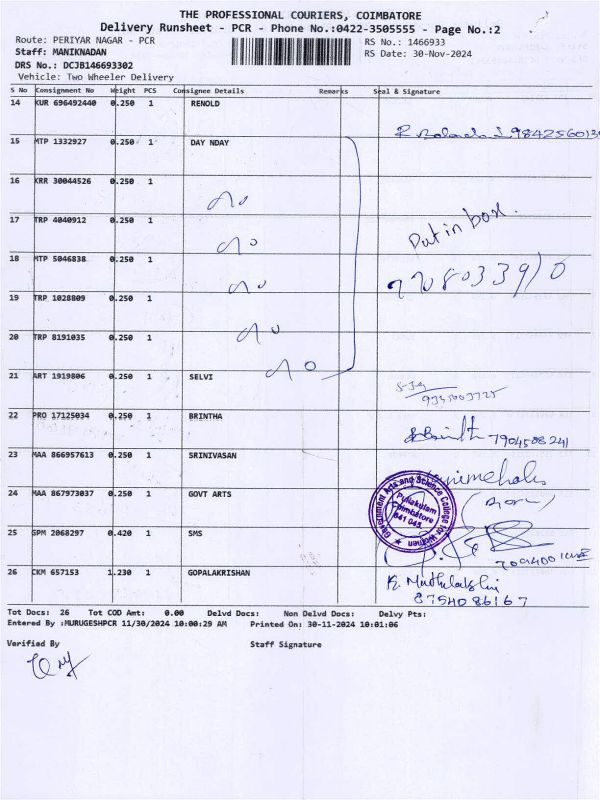 THE PROFESSIONAL COURIERS, COIMBATORE
Delivery Runsheet - PCR - Phone No.:0422-3505555 - Page No.:2
Route: PERIYAR NAGAR - PCR
RS No.: 1466933
Staff: MANIKNADAN
RS Date: 30-Nov-2024
DRS No.: DCJB146693302
Vehicle: Two Wheeler Delivery
S No Consignment No Weight PCS Consignee Details Remarks Seal & Signature
14 KUR 696492440 0.250 1 RENOLD
15 MTP 1332927 0.250 1 DAY NDAY
16 KRR 30044526 0.250 1
17 TRP 4040912 0.250 1
Put in box.
18 MTP 5046838 0.250 1
19 TRP 1028809 0.250 1
20 TRP 8191035 0.250 1
21 ART 1919806 0.250 1 SELVI
22 PRO 17125034 0.250 1 BRINTHA
7904508241
23 MAA 866957613 0.250 1 SRINIVASAN
24 MAA 867973037 0.250 1 GOVT ARTS
Government Arts and Science College for Women
Puliakulam
Coimbatore
641 045.
25 GPM 2068297 0.420 1 SMS
26 CKM 657153 1.230 1 GOPALAKRISHAN
8754086167
Tot Docs: 26 Tot COD Amt: 0.00 Delvd Docs: Non Delvd Docs: Delvy Pts:
Entered By :MURUGESHPCR 11/30/2024 10:00:29 AM Printed On: 30-11-2024 10:01:06
Verified By Staff Signature